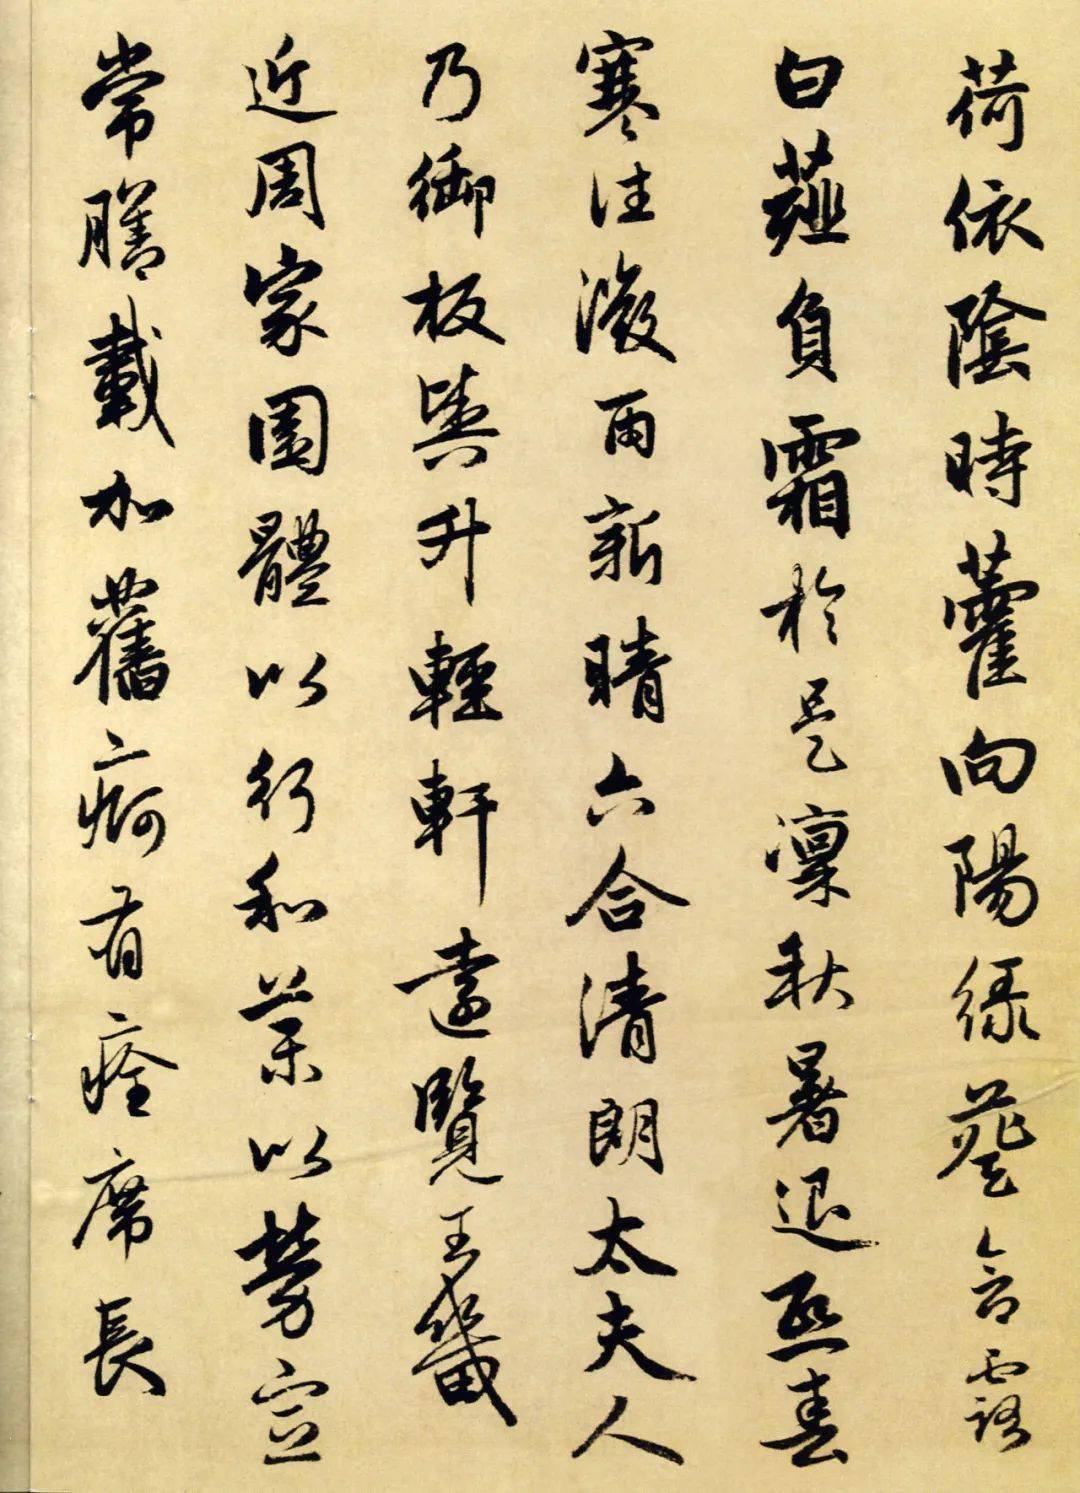 荷依陰時藿向陽綠葵含露
白薤負霜於是凜秋暑退熙春
寒往溦雨新晴六合清朗太夫人
乃御板輿升輕軒遠覽王畿
近周家園體以行和藥以勞宣
常膳載加舊痾有痊席長